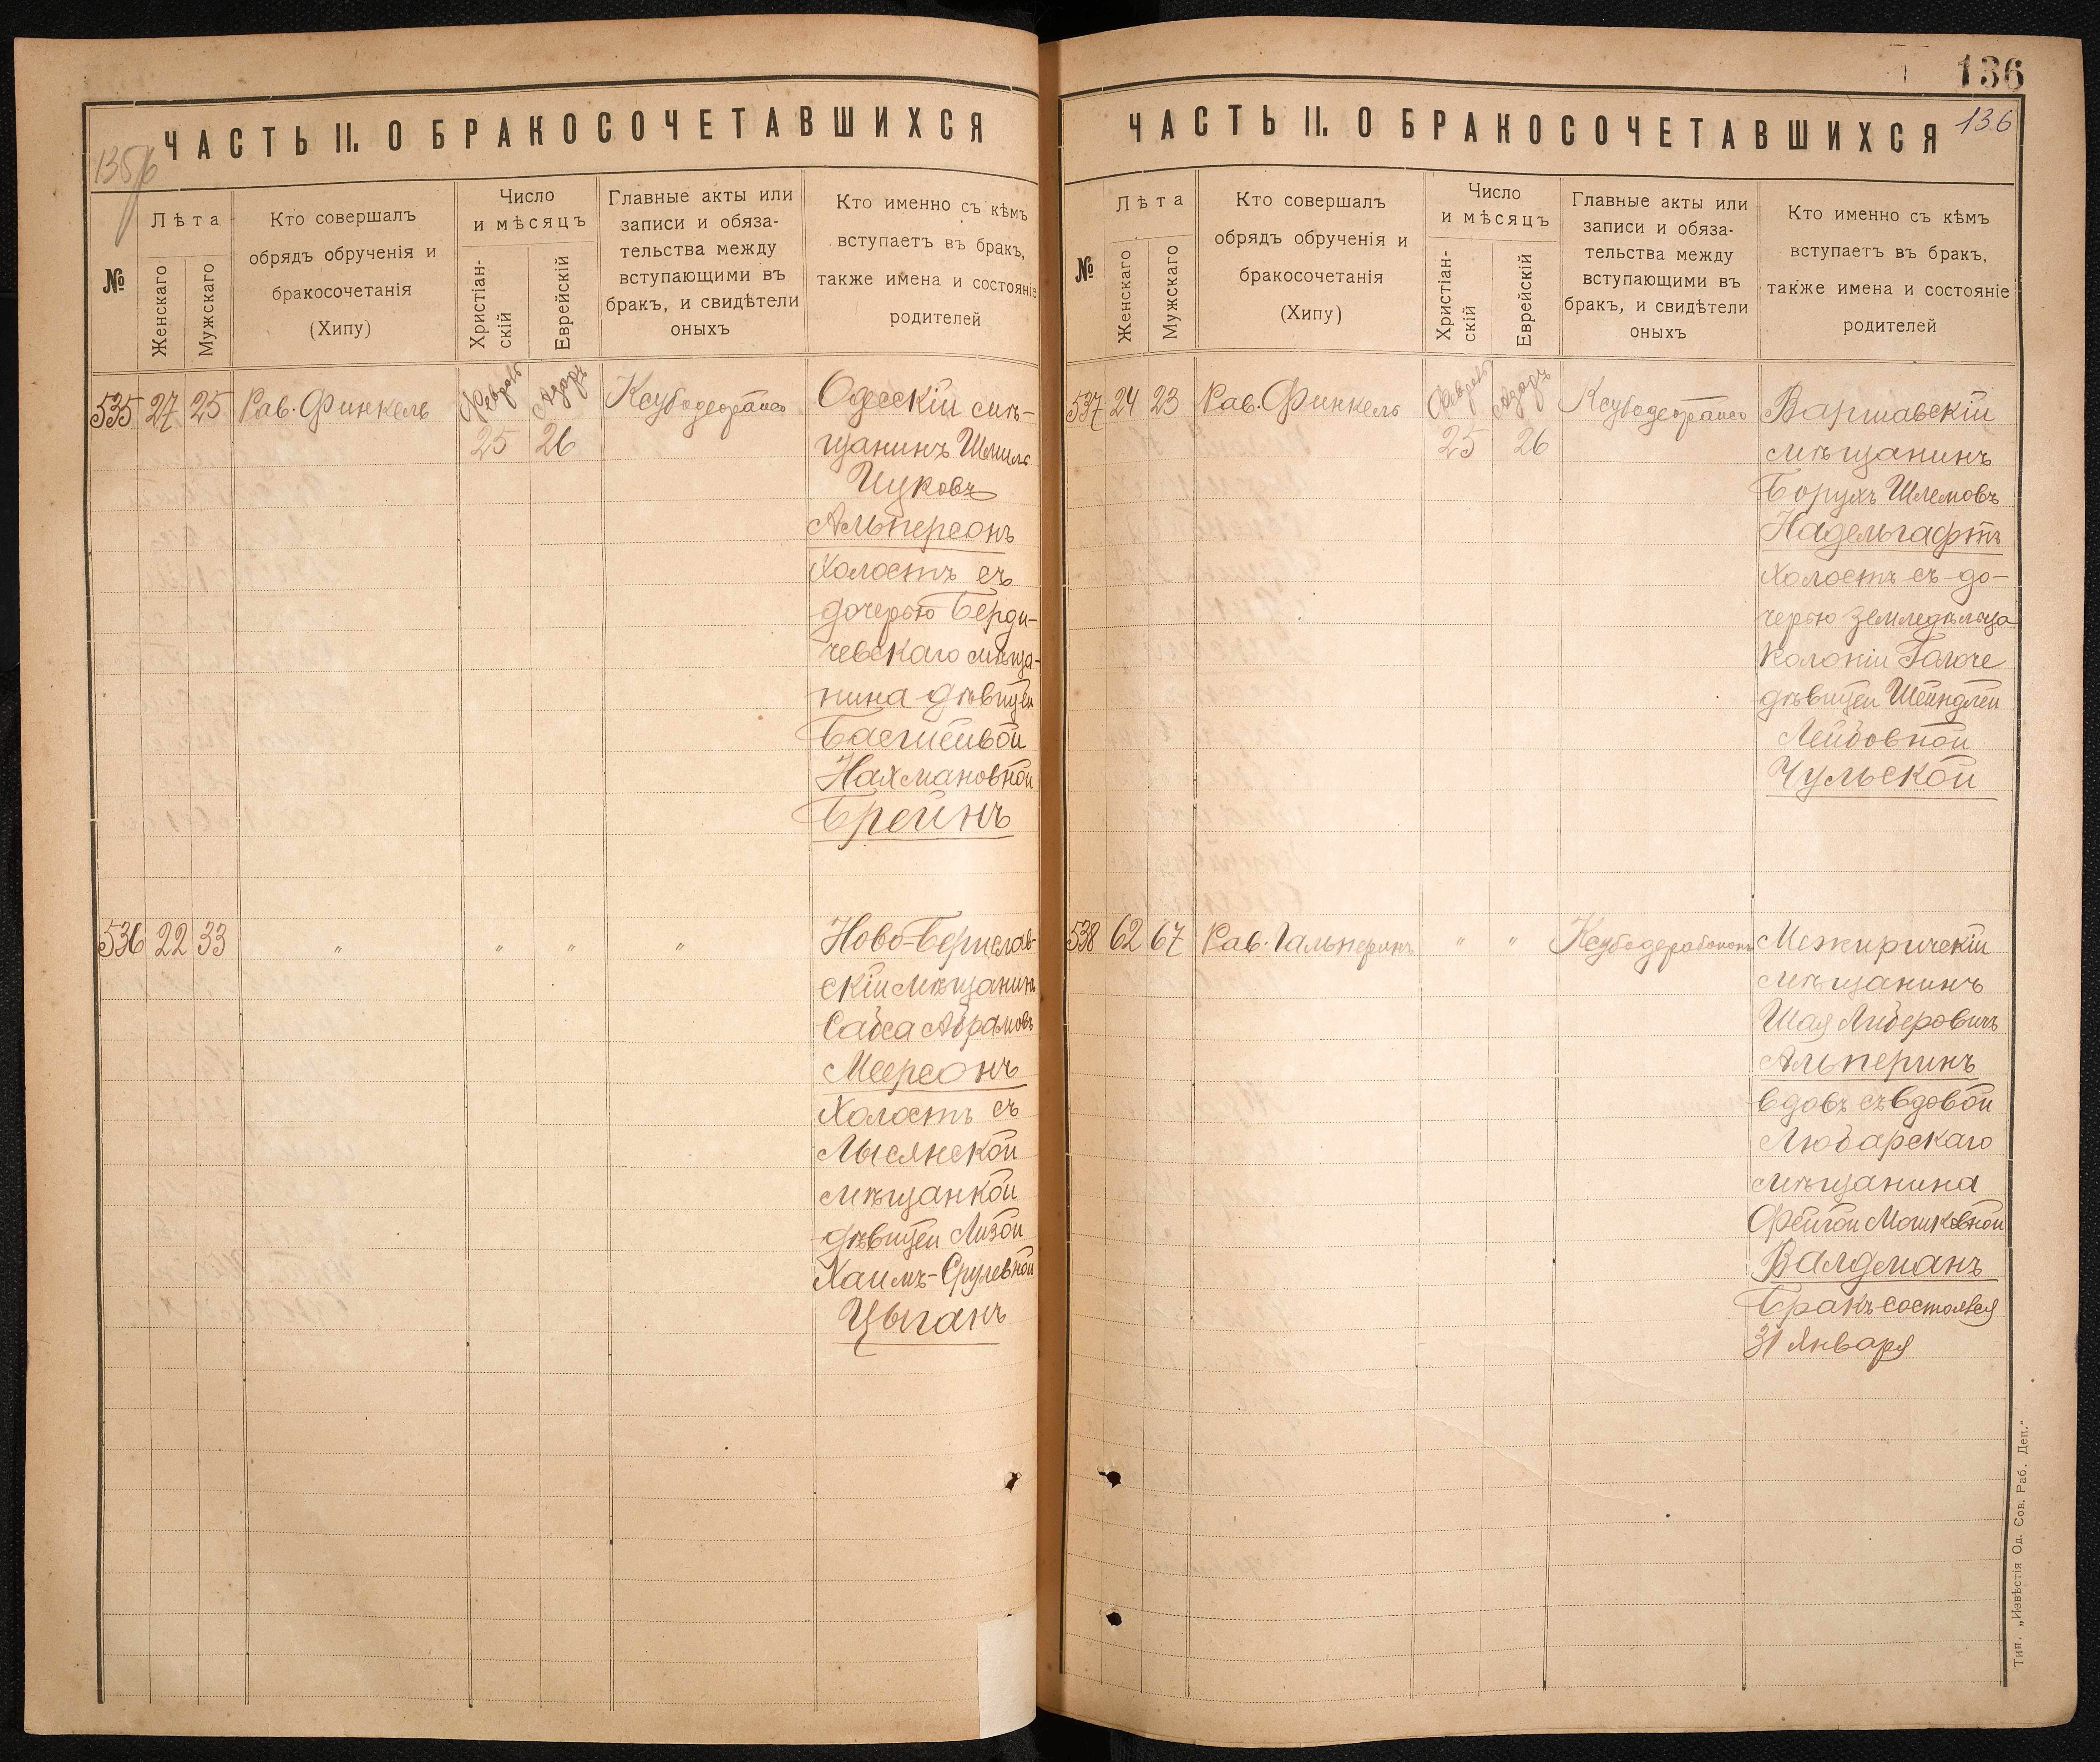 ЧАСТЬ II. О БРАКОСОЧЕТАВШИХСЯ
№
Лѣта
Женскаго
Мужскаго
Кто совершалъ
обрядъ обрученія и
бракосочетанія
(Хипу)
Число
и мѣсяцъ
Христіан-
скій
Еврейскій
Главные акты или
записи и обяза-
тельства между
вступающими въ
бракъ, и свидѣтели
оныхъ
Кто именно съ кѣмъ
вступаетъ въ бракъ,
также имена и состояніе
родителей
535 27 25 Рав. Финкель
Февраль Адаръ
25 26
Одесскій мѣ-
щанинъ Шмиль
Ицковъ
Альперсонъ
Холостъ съ
дочерью Берди-
чевскаго мѣща-
нина дѣвицей
Басшейвой
Нахмановной
Брейнъ
536 22 33 " " " "
Ново-Берислав-
скій мѣщанинъ
Сабса Абрамовъ
Меерсонъ
Холостъ съ
Лысянской
мѣщанкой
дѣвицей Лизой
Хаимъ-Срулевной
Цыганъ
136
136
ЧАСТЬ II. О БРАКОСОЧЕТАВШИХСЯ
№
Лѣта
Женскаго
Мужскаго
Кто совершалъ
обрядъ обрученія и
бракосочетанія
(Хипу)
Число
и мѣсяцъ
Христіан-
скій
Еврейскій
Главные акты или
записи и обяза-
тельства между
вступающими въ
бракъ, и свидѣтели
оныхъ
Кто именно съ кѣмъ
вступаетъ въ бракъ,
также имена и состояніе
родителей
537 24 23 Рав. Финкель
Февраль Адаръ
25 26
Варшавскій
мѣщанинъ
Борухъ Шлемовъ
Надельгафтъ
Холостъ съ до-
черью земледѣльца
колоніи
дѣвицей Шейндлей
Лейбовной
Чульской
538 62 67 Рав. Гальперинъ " "
Межиричскій
мѣщанинъ
Шая Либеровичъ
Альперинъ
вдовъ съ вдовой
Любарскаго
мѣщанина
Фейгой Мошковной
Валдманъ
Бракъ состоялся
31 Января
Тип. „Извѣстія Од. Сов. Раб. Деп."